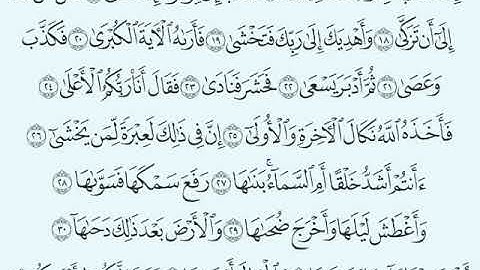 إِلَىٰٓ أَن تَزَكَّىٰ ١٨ وَأَهْدِيَكَ إِلَىٰ رَبِّكَ فَتَخْشَىٰ ١٩ فَأَرَىٰهُ ٱلْـَٔايَةَ ٱلْكُبْرَىٰ ٢٠ فَكَذَّبَ
وَعَصَىٰ ٢١ ثُمَّ أَدْبَرَ يَسْعَىٰ ٢٢ فَحَشَرَ فَنَادَىٰ ٢٣ فَقَالَ أَنَا۠ رَبُّكُمُ ٱلْأَعْلَىٰ ٢٤
فَأَخَذَهُ ٱللَّهُ نَكَالَ ٱلْـَٔاخِرَةِ وَٱلْأُولَىٰٓ ٢٥ إِنَّ فِى ذَٰلِكَ لَعِبْرَةً لِّمَن يَخْشَىٰٓ ٢٦
ءَأَنتُمْ أَشَدُّ خَلْقًا أَمِ ٱلسَّمَآءُ ۚ بَنَىٰهَا ٢٧ رَفَعَ سَمْكَهَا فَسَوَّىٰهَا ٢٨
وَأَغْطَشَ لَيْلَهَا وَأَخْرَجَ ضُحَىٰهَا ٢٩ وَٱلْأَرْضَ بَعْدَ ذَٰلِكَ دَحَىٰهَآ ٣٠